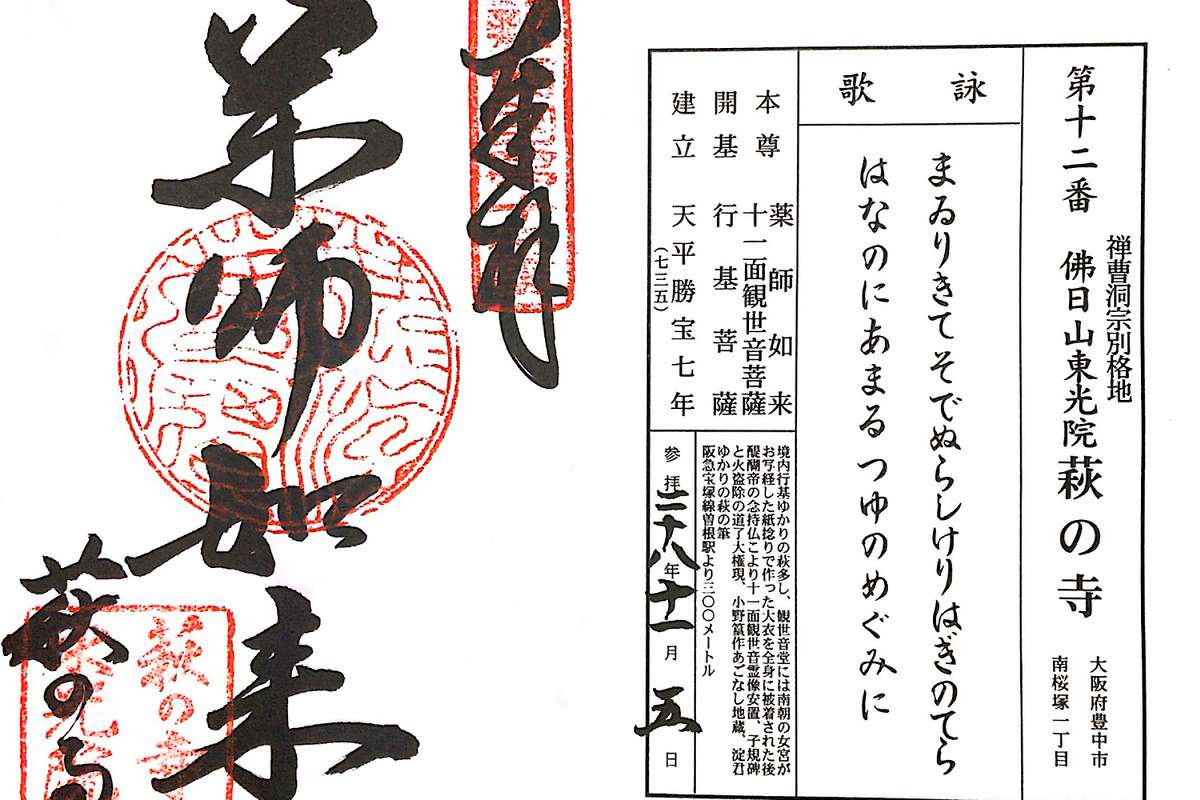 禅曹洞宗別格地
第十二番 佛日山東光院萩の寺
大阪府豊中市
南桜塚一丁目
詠歌
まゐりきてそでぬらしけりはぎのてら
はなのにあまるつゆのめぐみに
本尊 薬師如来
十一面観世音菩薩
開基 行基菩薩
建立 天平勝宝七年
(七三五)
境内行基ゆかりの萩多し、観世音堂には南朝の女宮が
お写経した紙捻りで作った大衣を全身に被着された後
醍醐帝の念持仏こより十一面観世音霊像安置、子規碑
と火盗除の道了大権現、小野篁作あごなし地蔵、淀君
ゆかりの萩の筆
阪急宝塚線曽根駅より三〇〇メートル
参拝二十八年十一月五日
奉拝
薬師如来
萩の寺
萩の寺